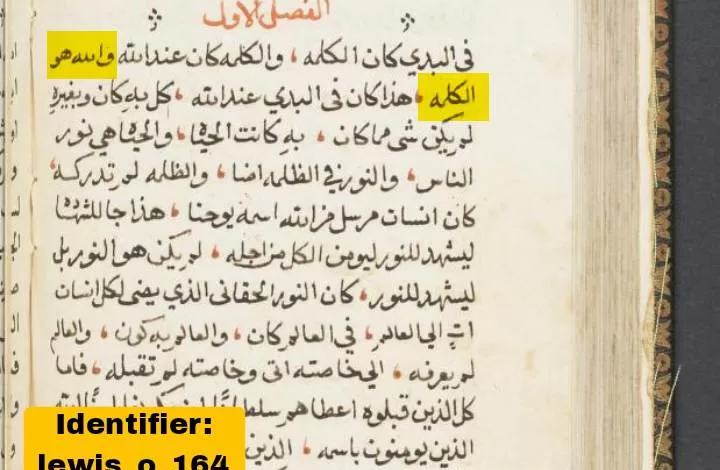 الفصل الاول
في البدي كان الكلمه ، والكلمه كان عندالله والله هو
الكلمه ، هذا كان في البدي عندالله ، كل به كان وبغيره
لم يكن شي مماكان ، به كانت الحياة ، والحياة هي نور
الناس ، والنور في الظلمه اضا ، والظلمه لم تدركه ،
كان انسان مرسل من الله اسمه يوحنا ، هذا جا للشهادة
ليشهد للنور ليومن الكل من اجله ، لم يكن هو النور بل
ليشهد للنور ، كان النور الحقاني الذي يضي لكل انسان
ات الي العالم ، في العالم كان ، والعالم به كون ، والعالم
لم يعرفه ، الي خاصته اتي وخاصته لم تقبله ، فاما
كل الذين قبلوه اعطاهم سلطانا
الذين يومنون باسمه ، الذين
Identifier:
lewis_o_164